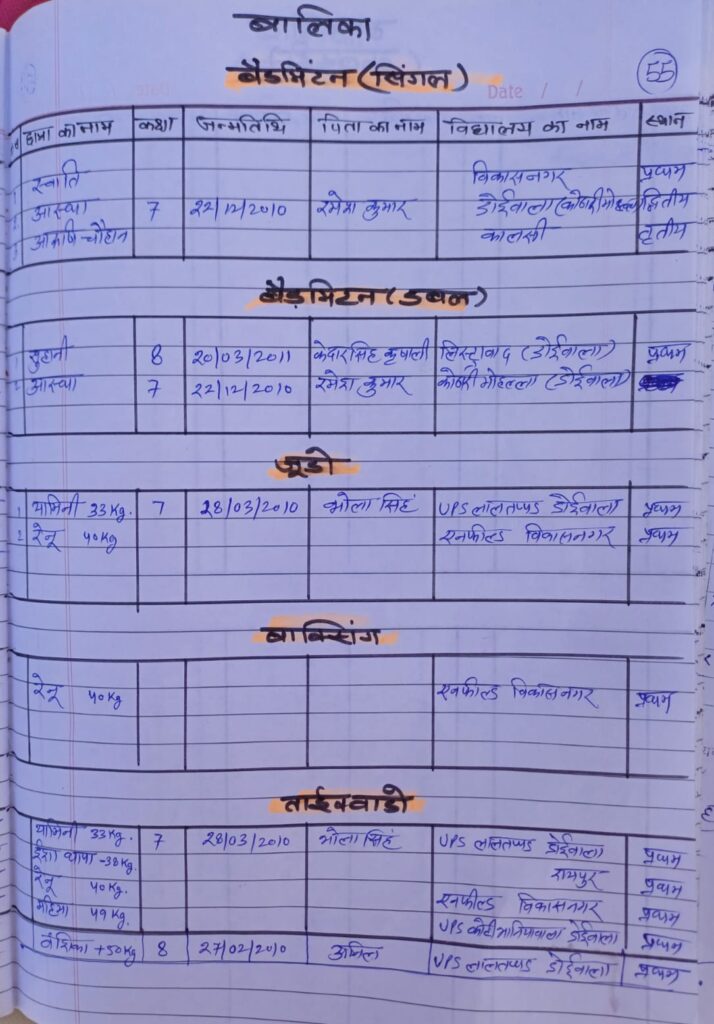 बालिका
बैडमिंटन (सिंगल)
55
Date / /
छात्रा का नाम कक्षा जन्मतिथि पिता का नाम विद्यालय का नाम स्थान
1 स्वाति विकासनगर प्रथम
2 आस्था 7 22/12/2010 रमेश कुमार डोईवाला (कोठारी मोहल्ला) द्वितीय
3 आकृषि चौहान कालसी तृतीय
बैडमिंटन (डबल)
1 सुहानी 8 20/03/2011 केदार सिंह कृषाली लिस्ट्राबाद (डोईवाला) प्रथम
2 आस्था 7 22/12/2010 रमेश कुमार कोठारी मोहल्ला (डोईवाला)
जूडो
1 यामिनी 33 Kg. 7 28/03/2010 भोला सिंह UPS लालतप्पड़ डोईवाला प्रथम
2 रेनू 40 Kg एनफील्ड विकासनगर प्रथम
बाक्सिंग
रेनू 40 Kg एनफील्ड विकासनगर प्रथम
ताईक्वाडो
यामिनी 33 Kg. 7 28/03/2010 भोला सिंह UPS लालतप्पड़ डोईवाला प्रथम
ईशा थापा -38 Kg. रामपुर प्रथम
रेनू 40 Kg. एनफील्ड विकासनगर प्रथम
महिमा 49 Kg. UPS कोटी डोईवाला प्रथम
वंशिका +50 Kg 8 27/02/2010 अनिल UPS लालतप्पड़ डोईवाला प्रथम